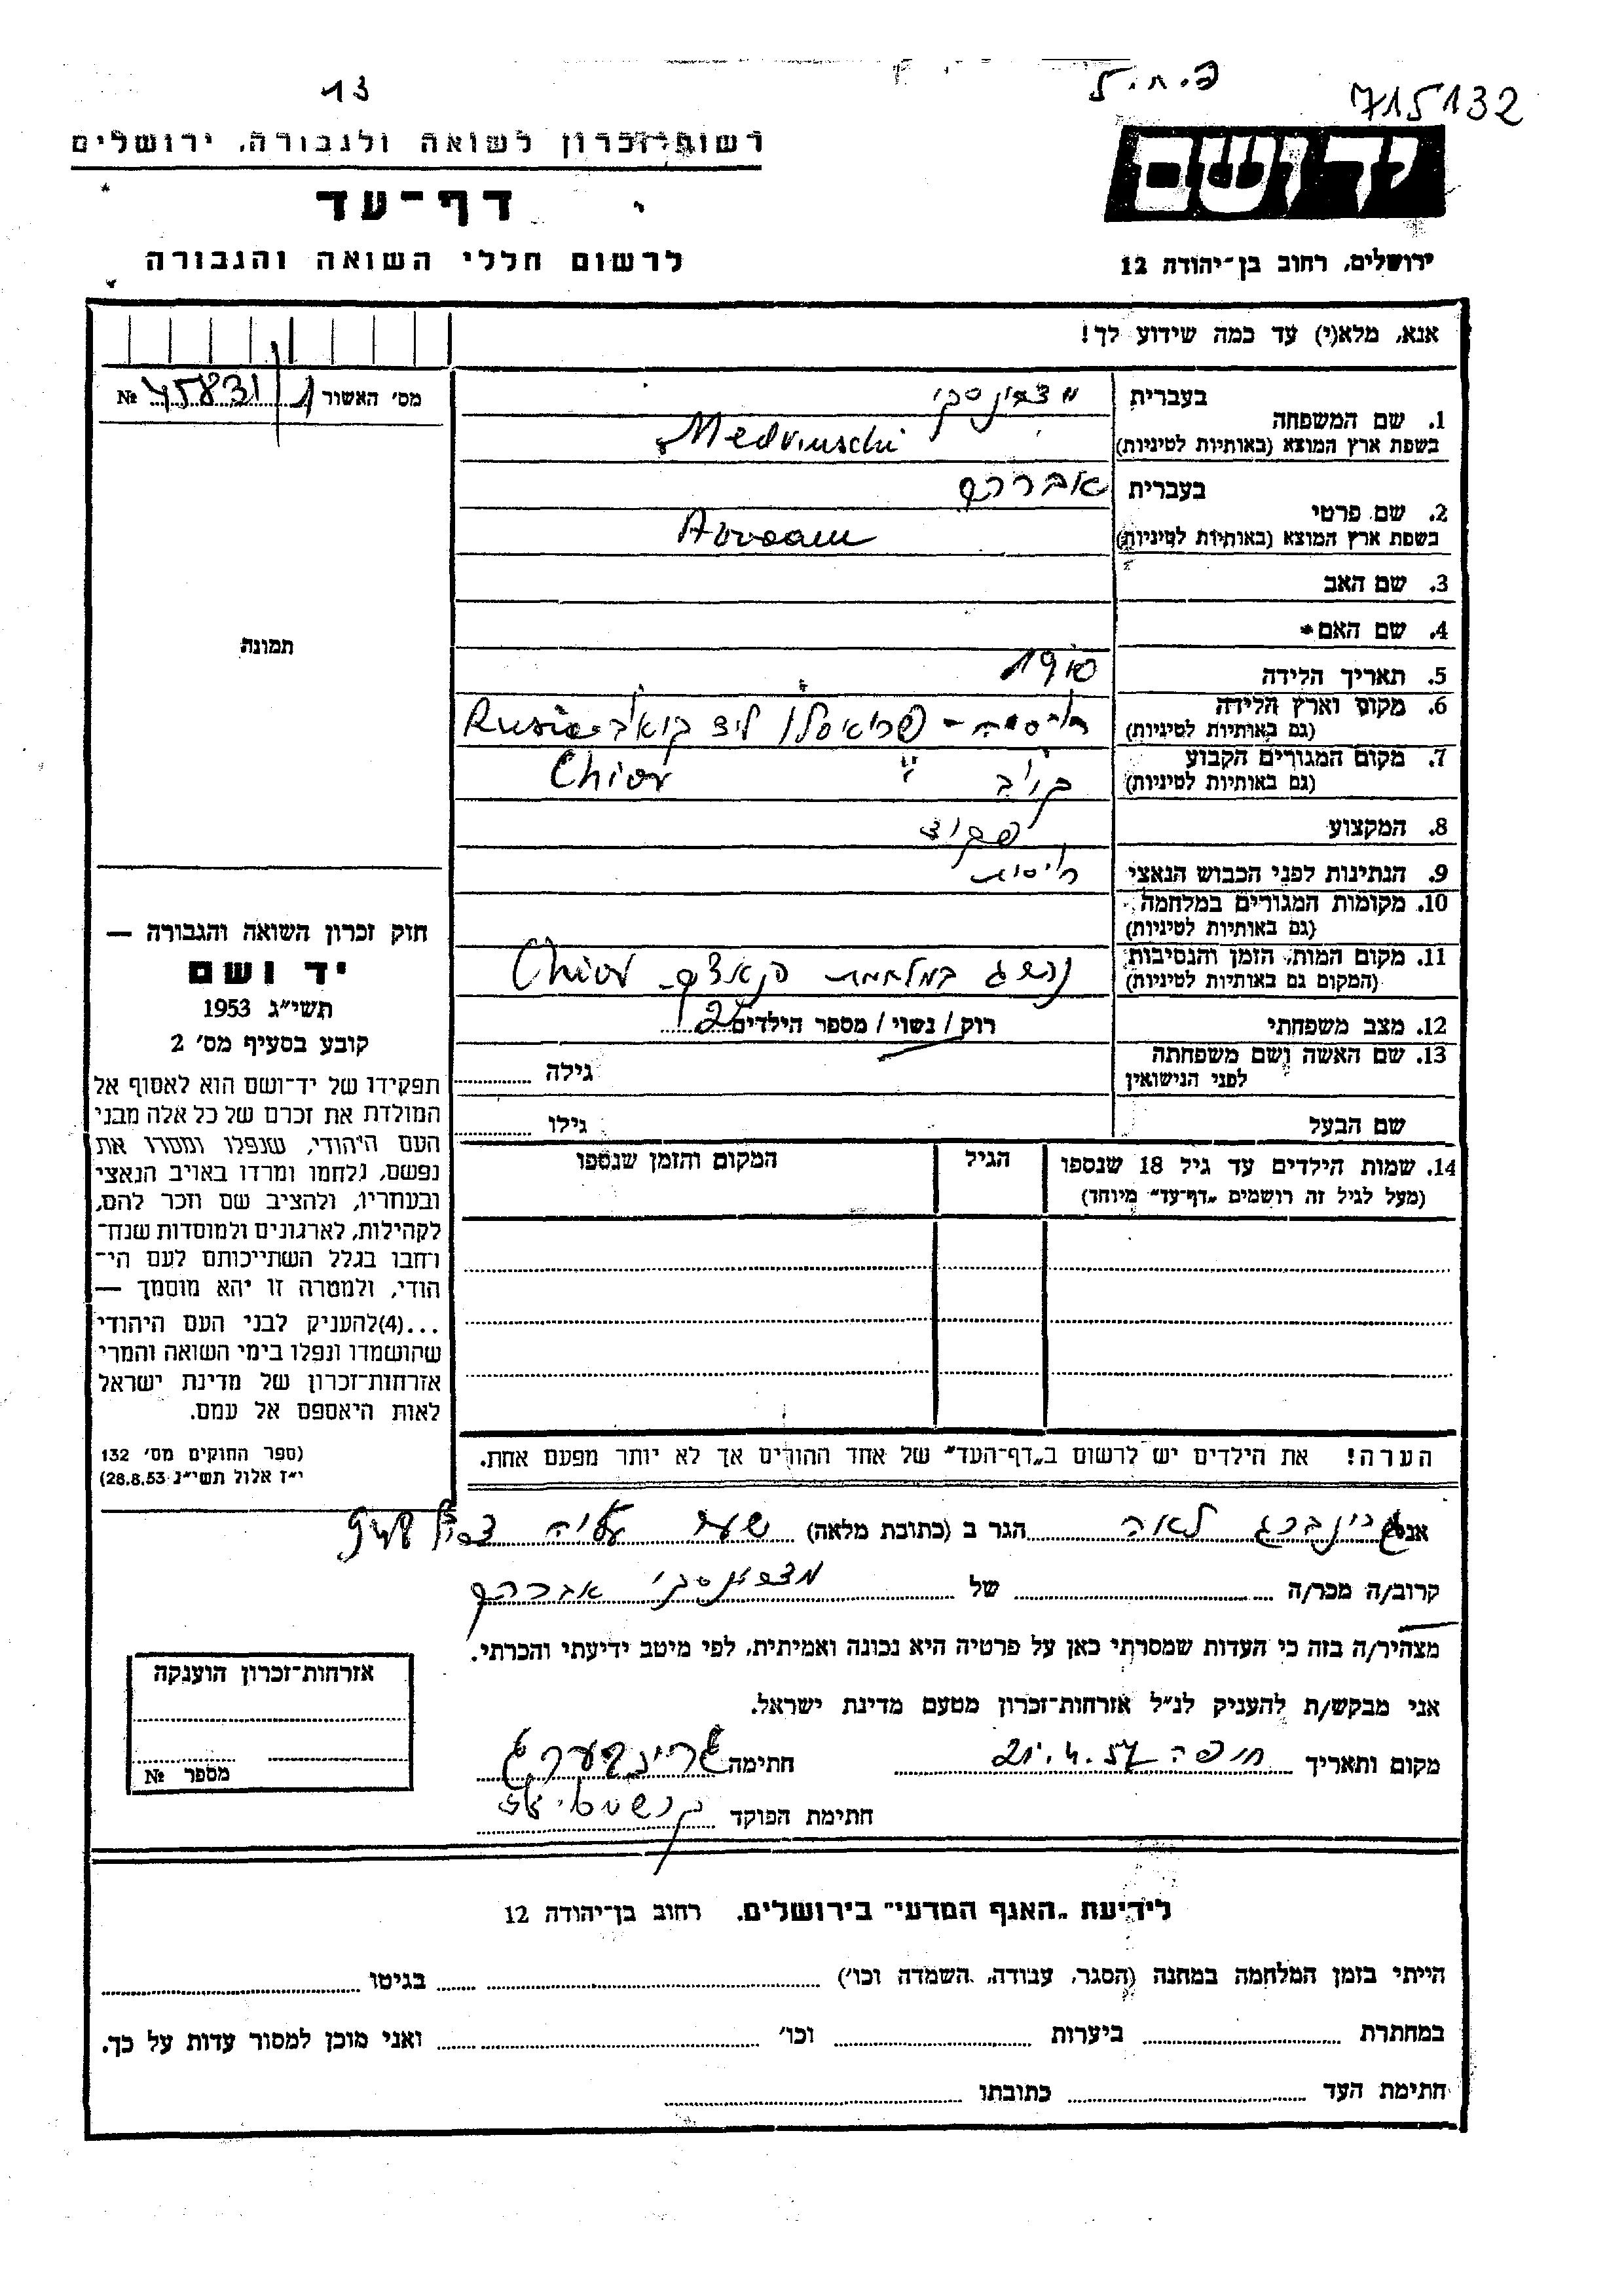 13
פ.ח.ל
715132
רשות־זכרון לשואה ולגבורה, ירושלים
יד ושם
דף־עד
לרשום חללי השואה והגבורה
ירושלים, רחוב בן־יהודה 12
אנא, מלא(י) עד כמה שידוע לך!
מס׳ האשור
№ 75831
1. שם המשפחה
בעברית
בשפת ארץ המוצא (באותיות לטיניות)
Medvinschi
2. שם פרטי
בעברית אברהם
בשפת ארץ המוצא (באותיות לטיניות)
Avraam
3. שם האב
4. שם האם*
תמונה
5. תאריך הלידה 1910
6. מקום וארץ הלידה
(גם באותיות לטיניות)
רוסיה - ליד קיאב Rusia
7. מקום המגורים הקבוע
(גם באותיות לטיניות)
קיוב Chiov
8. המקצוע פקיד
9. הנתינות לפני הכבוש הנאצי רוסית
10. מקומות המגורים במלחמה
(גם באותיות לטיניות)
11. מקום המות, הזמן והנסיבות
(המקום גם באותיות לטיניות)
נהרג במלחמת Chiov
12. מצב משפחתי
רוק / נשוי / מספר הילדים 2
13. שם האשה ושם משפחתה
לפני הנישואין
גילה
שם הבעל
גילו
14. שמות הילדים עד גיל 18 שנספו
(מעל לגיל זה רושמים „דף־עד” מיוחד)
הגיל
המקום והזמן שנספו
הערה! את הילדים יש לרשום ב„דף־העד” של אחד ההורים אך לא יותר מפעם אחת.
חוק זכרון השואה והגבורה —
יד ושם
תשי״ג 1953
קובע בסעיף מס׳ 2
תפקידו של יד־ושם הוא לאסוף אל
המולדת את זכרם של כל אלה מבני
העם היהודי, שנפלו ומסרו את
נפשם, נלחמו ומרדו באויב הנאצי
ובעוזריו, ולהציב שם וזכר להם,
לקהילות, לארגונים ולמוסדות שנח־
רבו בגלל השתייכותם לעם הי־
הודי, ולמטרה זו יהא מוסמך —
...(4)להעניק לבני העם היהודי
שהושמדו ונפלו בימי השואה והמרי
אזרחות־זכרון של מדינת ישראל
לאות היאספם אל עמם.
(ספר החוקים מס׳ 132
י״ז אלול תשי״ג 28.8.53)
אני גרינברג לאה הגר ב (כתובת מלאה) שער עליה
קרוב/ה מכר/ה של מדבינסקי אברהם
מצהיר/ה בזה כי העדות שמסרתי כאן על פרטיה היא נכונה ואמיתית, לפי מיטב ידיעתי והכרתי.
אני מבקש/ת להעניק לנ״ל אזרחות־זכרון מטעם מדינת ישראל.
מקום ותאריך חיפה 21.4.57 חתימה גרינבערג
חתימת הפוקד
אזרחות־זכרון הוענקה
מספר №
לידיעת „האגף המדעי” בירושלים, רחוב בן־יהודה 12
הייתי בזמן המלחמה במחנה (הסגר, עבודה, השמדה וכו׳) בגיטו
במחתרת ביערות וכו׳ ואני מוכן למסור עדות על כך.
חתימת העד כתובתו